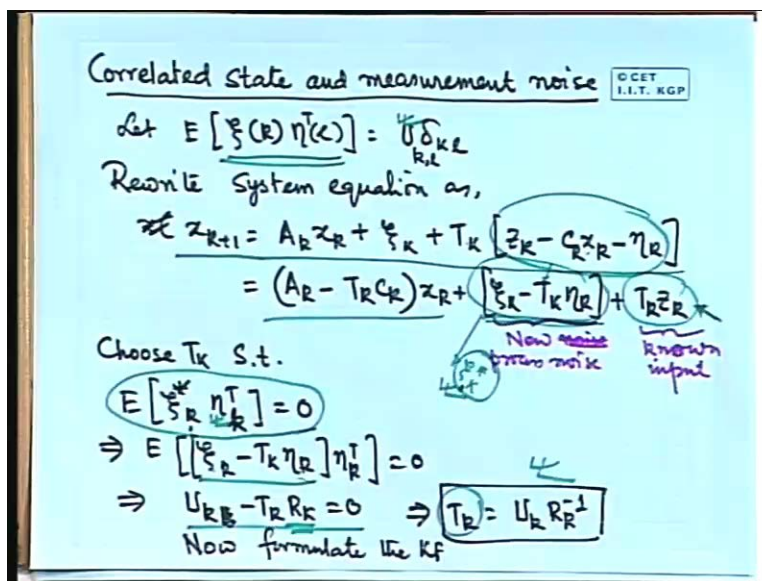 Correlated state and measurement noise
© CET
I.I.T. KGP
Let E[ξ(k) η^T(l)] = U δ_kl
k,l
Rewrite System equation as,
x_{k+1} = A_k x_k + ξ_k + T_k [z_k - C_k x_k - η_k]
= (A_k - T_k C_k) x_k + [ξ_k - T_k η_k] + T_k z_k
Now process noise
known input
Choose T_k s.t.
E[ξ*_k η_k^T] = 0
⇒ E[[ξ_k - T_k η_k] η_k^T] = 0
⇒ U_k - T_k R_k = 0 ⇒ T_k = U_k R_k^{-1}
Now formulate the KF